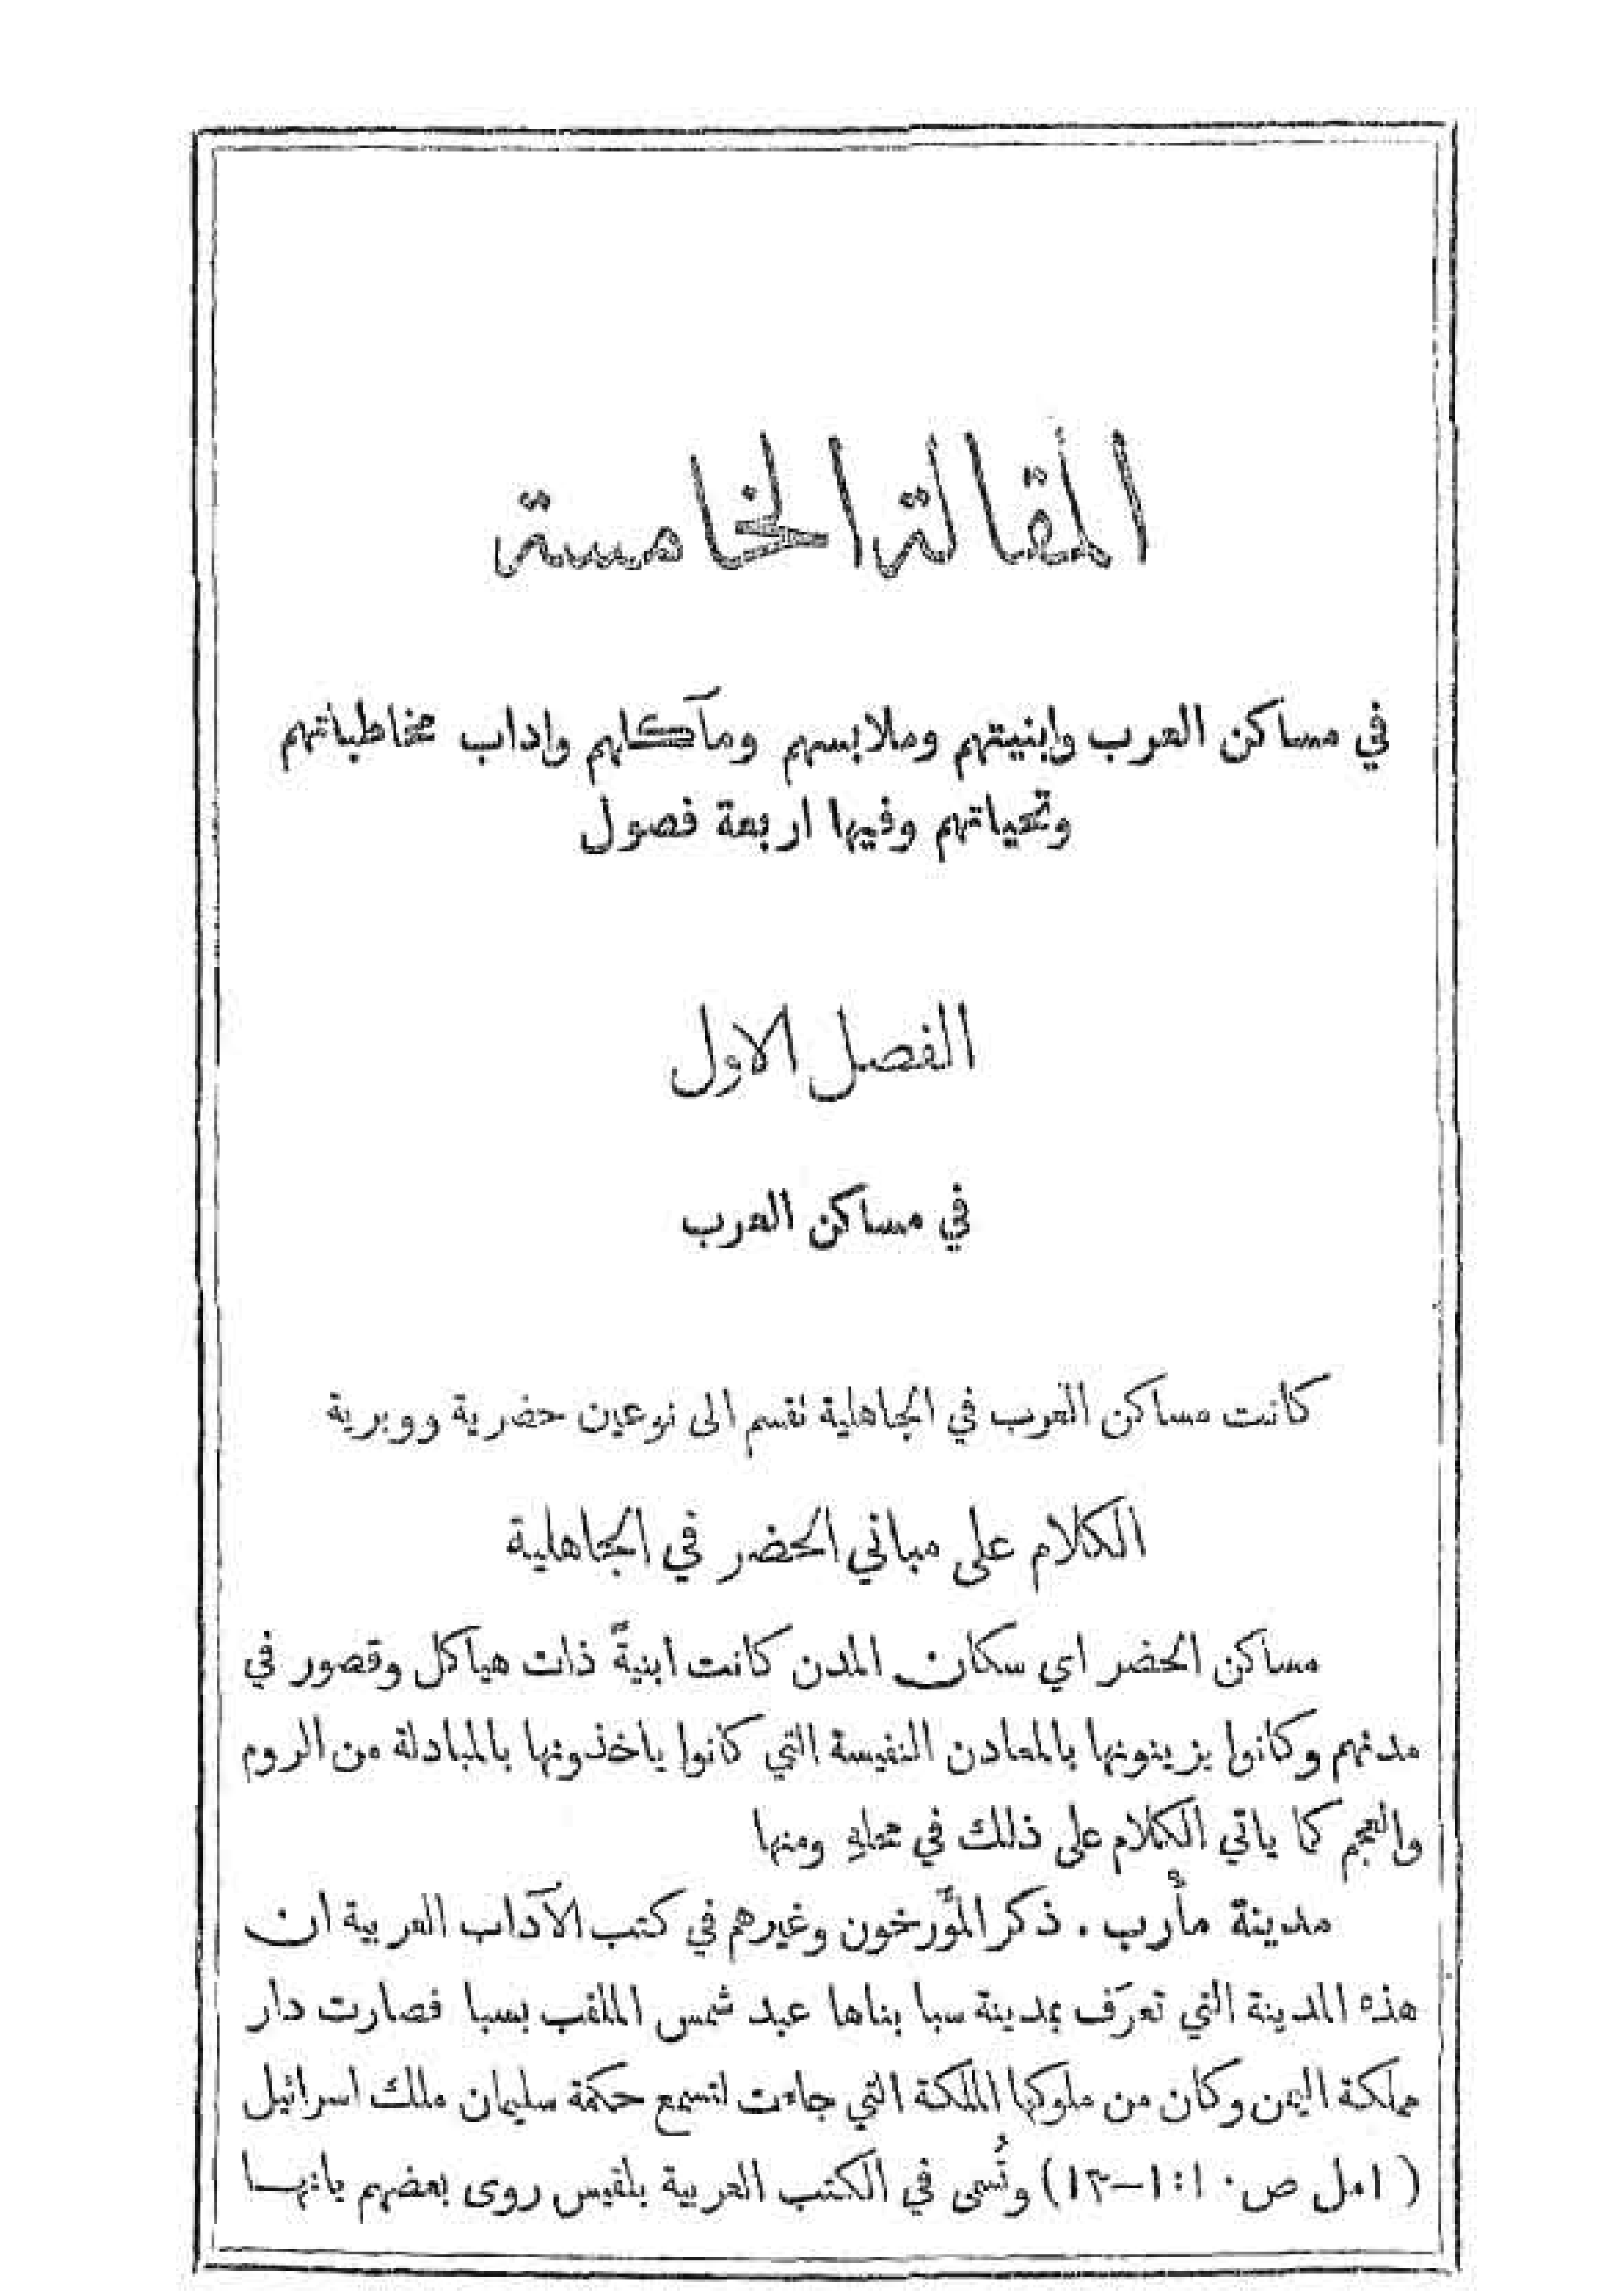 المقالة الخامسة
في مساكن العرب وابنيتهم وملابسهم ومآكلهم واداب مخاطباتهم
وتحياتهم وفيها اربعة فصول
الفصل الاول
في مساكن العرب
كانت مساكن العرب في الجاهلية تقسم الى نوعين حضرية ووبرية
الكلام على مباني الحضر في الجاهلية
مساكن الحضر اي سكان المدن كانت ابنيةً ذات هياكل وقصور في
مدنهم وكانوا يزينونها بالمعادن النفيسة التي كانوا ياخذونها بالمبادلة من الروم
والعجم كما ياتي الكلام على ذلك في محلهِ ومنها
مدينة مأْرب . ذكر المؤَرخون وغيرهم في كتب الآداب العربية ان
هذه المدينة التي تعرَف بمدينة سبا بناها عبد شمس الملقب بسبا فصارت دار
مملكة اليمن وكان من ملوكها الملكة التي جاءت لتسمع حكمة سليمان ملك اسرائيل
(١مل ص١٠:١–١٣) وتُسمى في الكتب العربية بلقيس روى بعضهم بانها